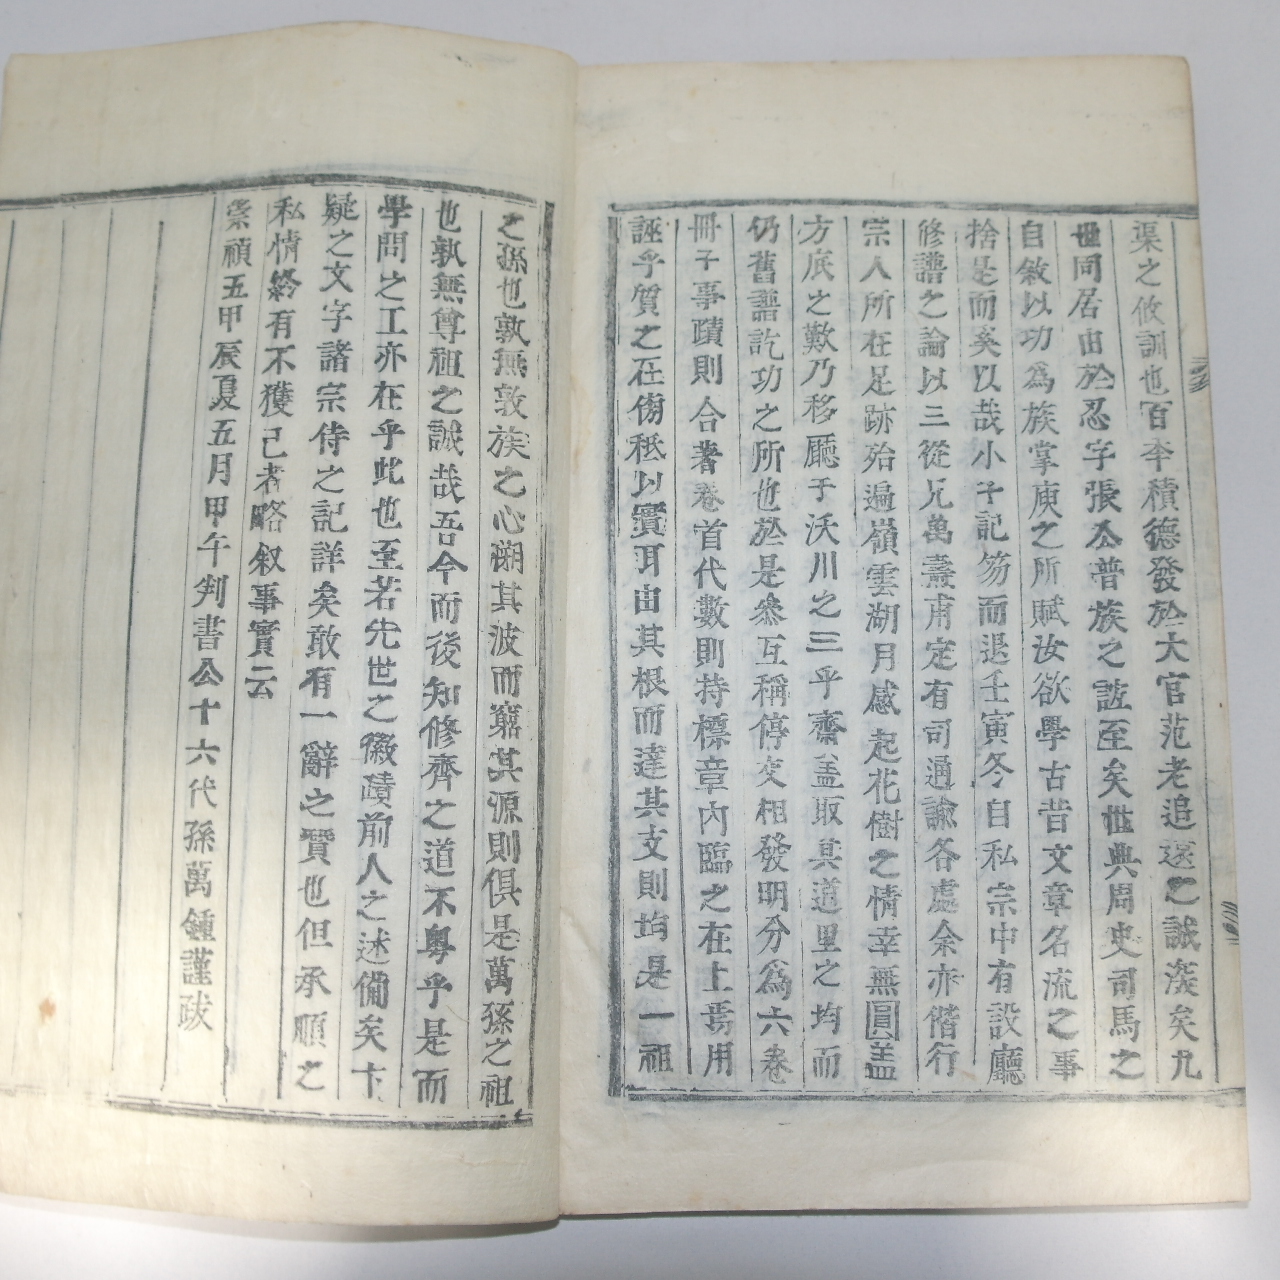 渠之攸訓也百年積德發於大官范老追遠之誠深矣九
世同居由於忍字張公普族之誼至矣世典周史司馬之
自敘以功爲族掌庾之所賦汝欲學古昔文章名流之事
捨是而奚以哉小子記笏而退壬寅冬自私宗中有設廳
修譜之論以三從兄萬燾甫定有司通諭各處余亦偕行
宗人所在足跡殆遍嶺雲湖月感起花樹之情幸無圓蓋
方底之歎乃移廳于沃川之三乎齋盖取其道里之均而
仍舊譜訖功之所也於是參互稱停交相發明分爲六卷
冊子事蹟則合著卷首代數則持標章內臨之在上焉用
誣乎質之在傍秪以實耳由其根而達其支則均是一祖
之孫也孰無敦族之心溯其波而窮其源則俱是萬孫之祖
也孰無尊祖之誠哉吾今而後知修齊之道不粤乎是而
學問之工亦在乎此也至若先世之徽蹟前人之述備矣卞
疑之文字諸宗侍之記詳矣敢有一辭之贊也但承順之
私情終有不獲已者略叙事實云
崇禎五甲辰夏五月甲午判書公十六代孫萬鍾謹跋